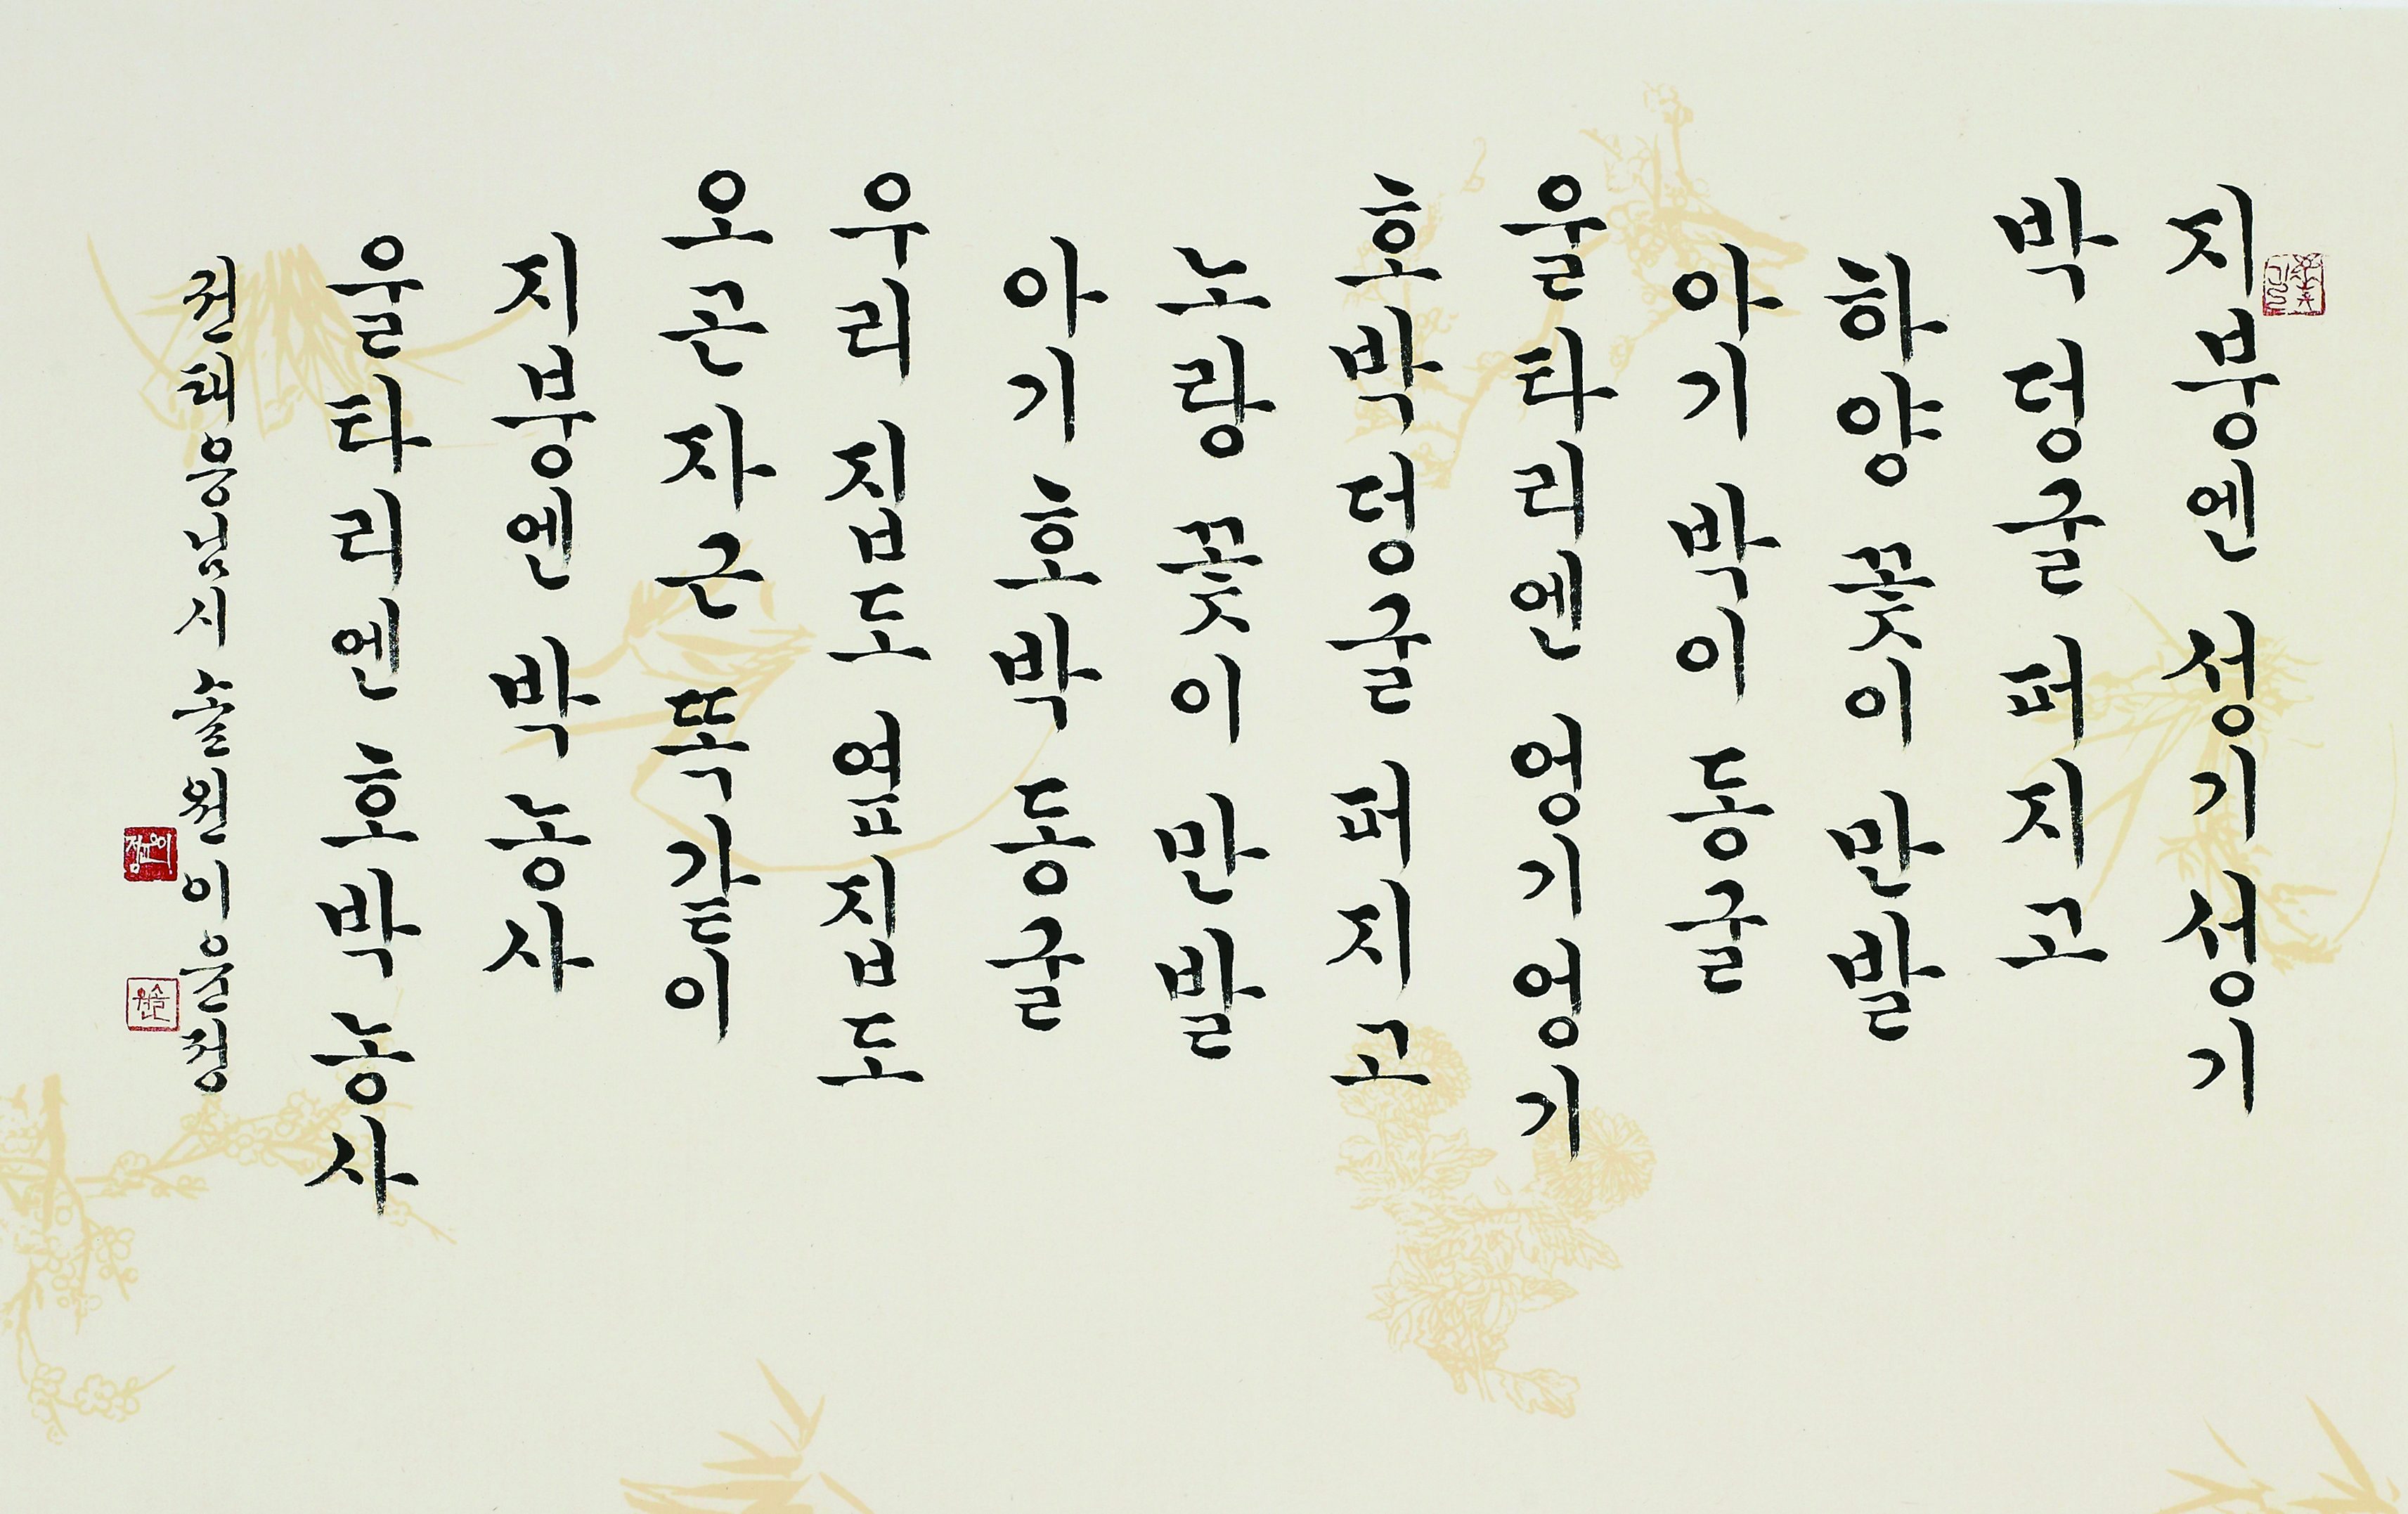 지붕엔 성기성기
박덩굴 퍼지고
하양 꽃이 만발
아기 박이 동굴
울타리엔 엉기엉기
호박덩굴 퍼지고
노랑 꽃이 만발
아기 호박 동굴
우리 집도 옆 집도
오곤자근 똑같이
지붕엔 박 농사
울타리엔 호박 농사
권태응님시 솔원 이윤정